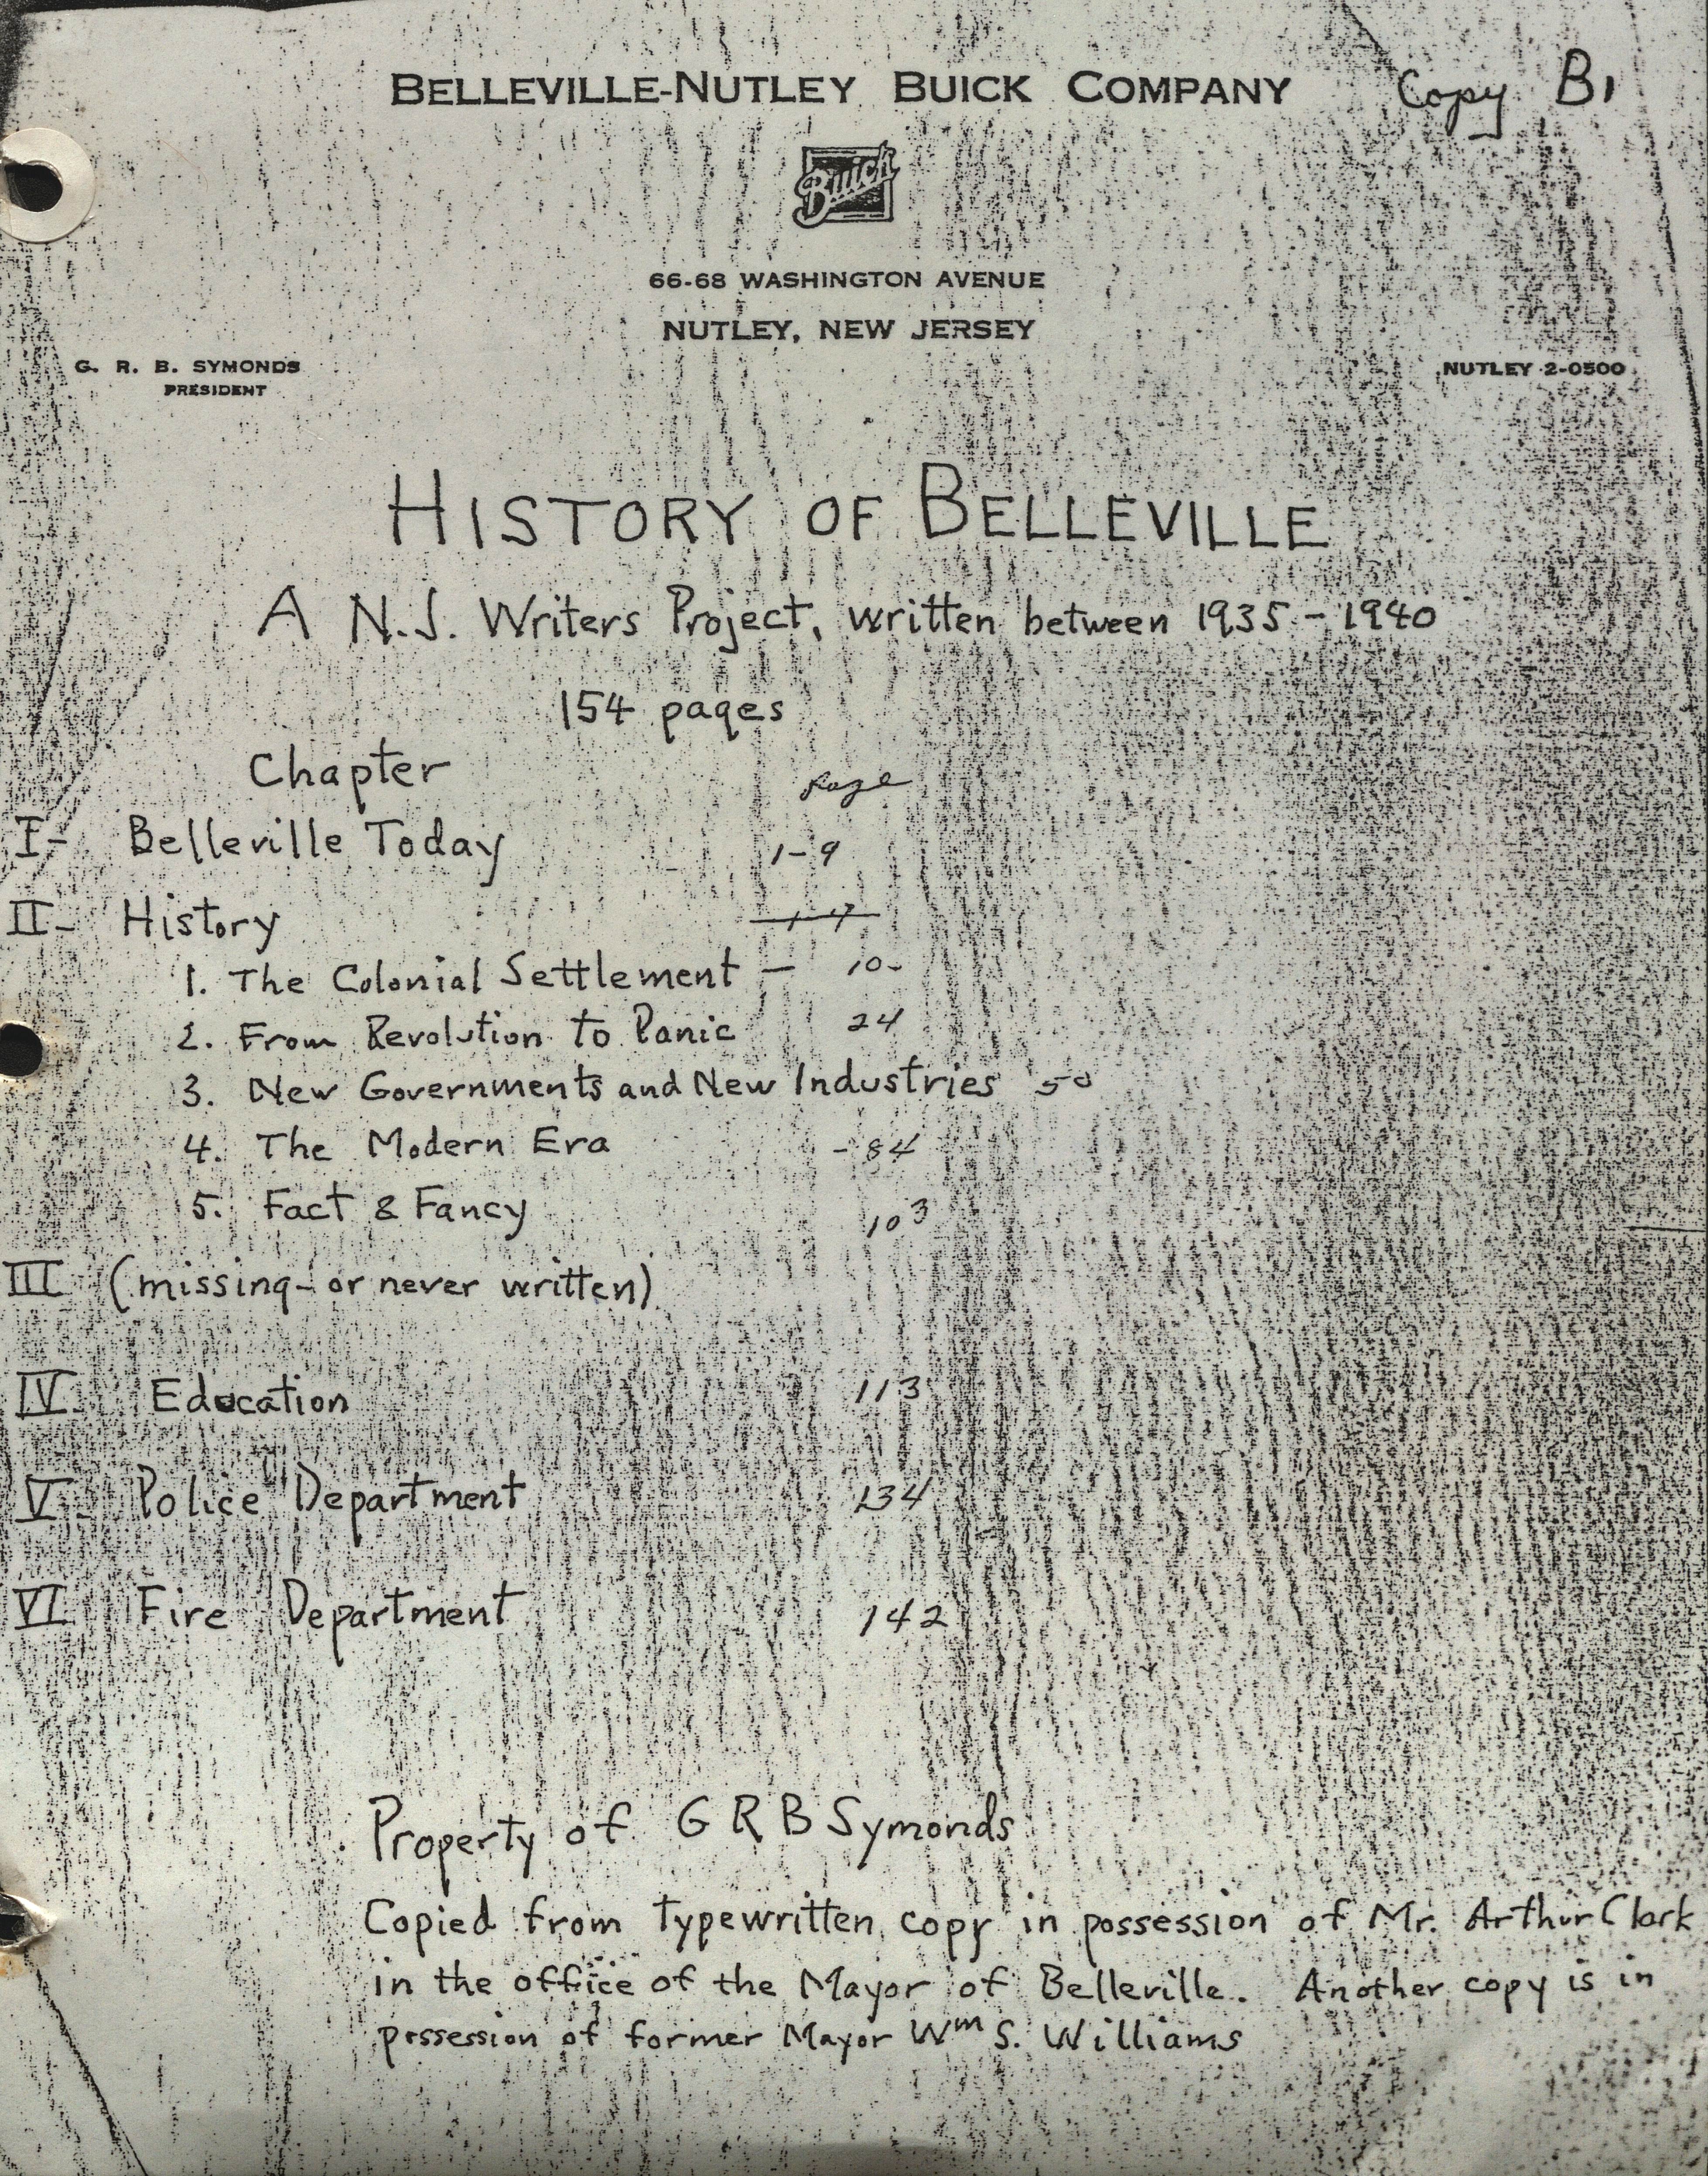 BELLEVILLE-NUTLEY BUICK COMPANY Copy B1
Buick
66-68 WASHINGTON AVENUE
NUTLEY, NEW JERSEY
G. R. B. SYMONDS NUTLEY 2-0500
PRESIDENT
HISTORY OF BELLEVILLE
A N.J. Writers Project, written between 1935-1940
154 pages
Chapter Page
I- Belleville Today 1-9
II- History
1. The Colonial Settlement - 10-
2. From Revolution to Panic 24
3. New Governments and New Industries 50
4. The Modern Era - 84
5. Fact & Fancy 103
III (missing - or never written)
IV. Education 113
V. Police Department 134
VI. Fire Department 142
Property of G R B Symonds
Copied from typewritten copy in possession of Mr. Arthur Clark
in the office of the Mayor of Belleville. Another copy is in
possession of former Mayor Wm S. Williams